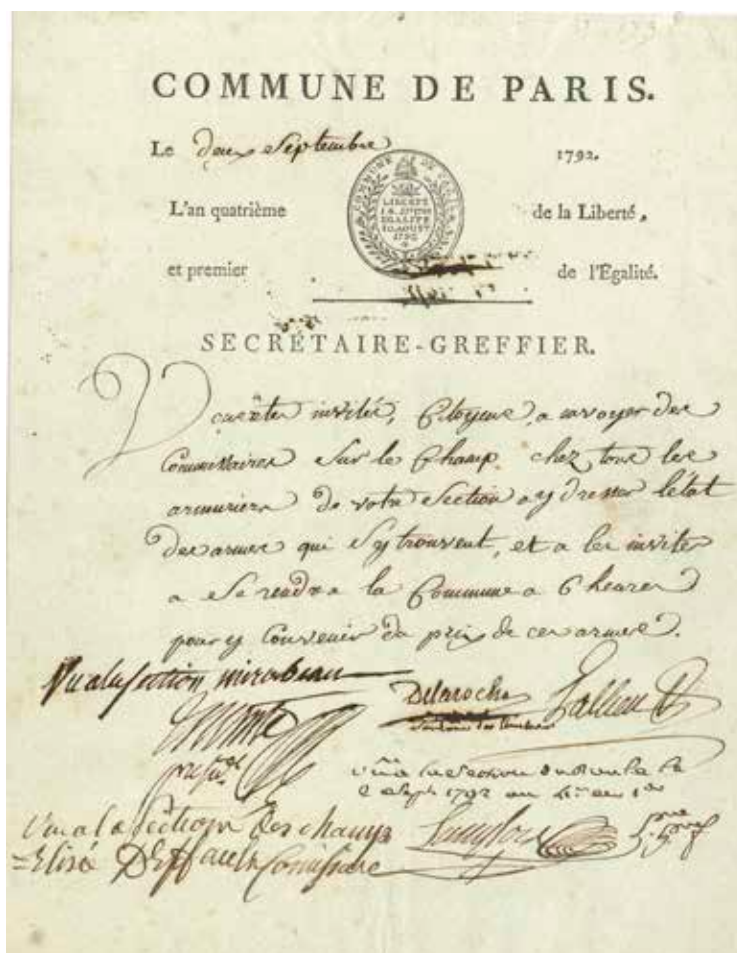 COMMUNE DE PARIS.
Le deux Septembre 1792.
L'an quatrième de la Liberté,
et premier de l'Égalité.
COMMUNE DE PARIS
LIBERTÉ
EGALITÉ
10 AOUST
1792
SECRÉTAIRE-GREFFIER.
Vous êtes invités, Citoyens, a envoyer des
Commissaires sur le Champ chez tous les
armuriers de votre Section a y dresser l'état
des armes qui s'y trouvent, et a les inviter
a se rendre a la Commune a 6 heures
pour y Convenir du prix de ces armes.
Vu a la section mirabeau
Delaroche Tallien
vu a la section du Roule le
2 1792
Vu a la Section des champs
=Elisé Comissaire